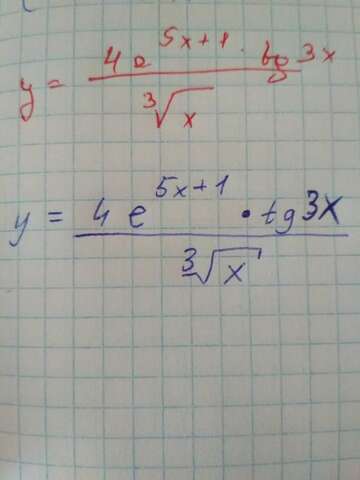 y = 4e^{5x+1} · tg 3x / ∛x
y = 4e^{5x+1} · tg 3x / ∛x